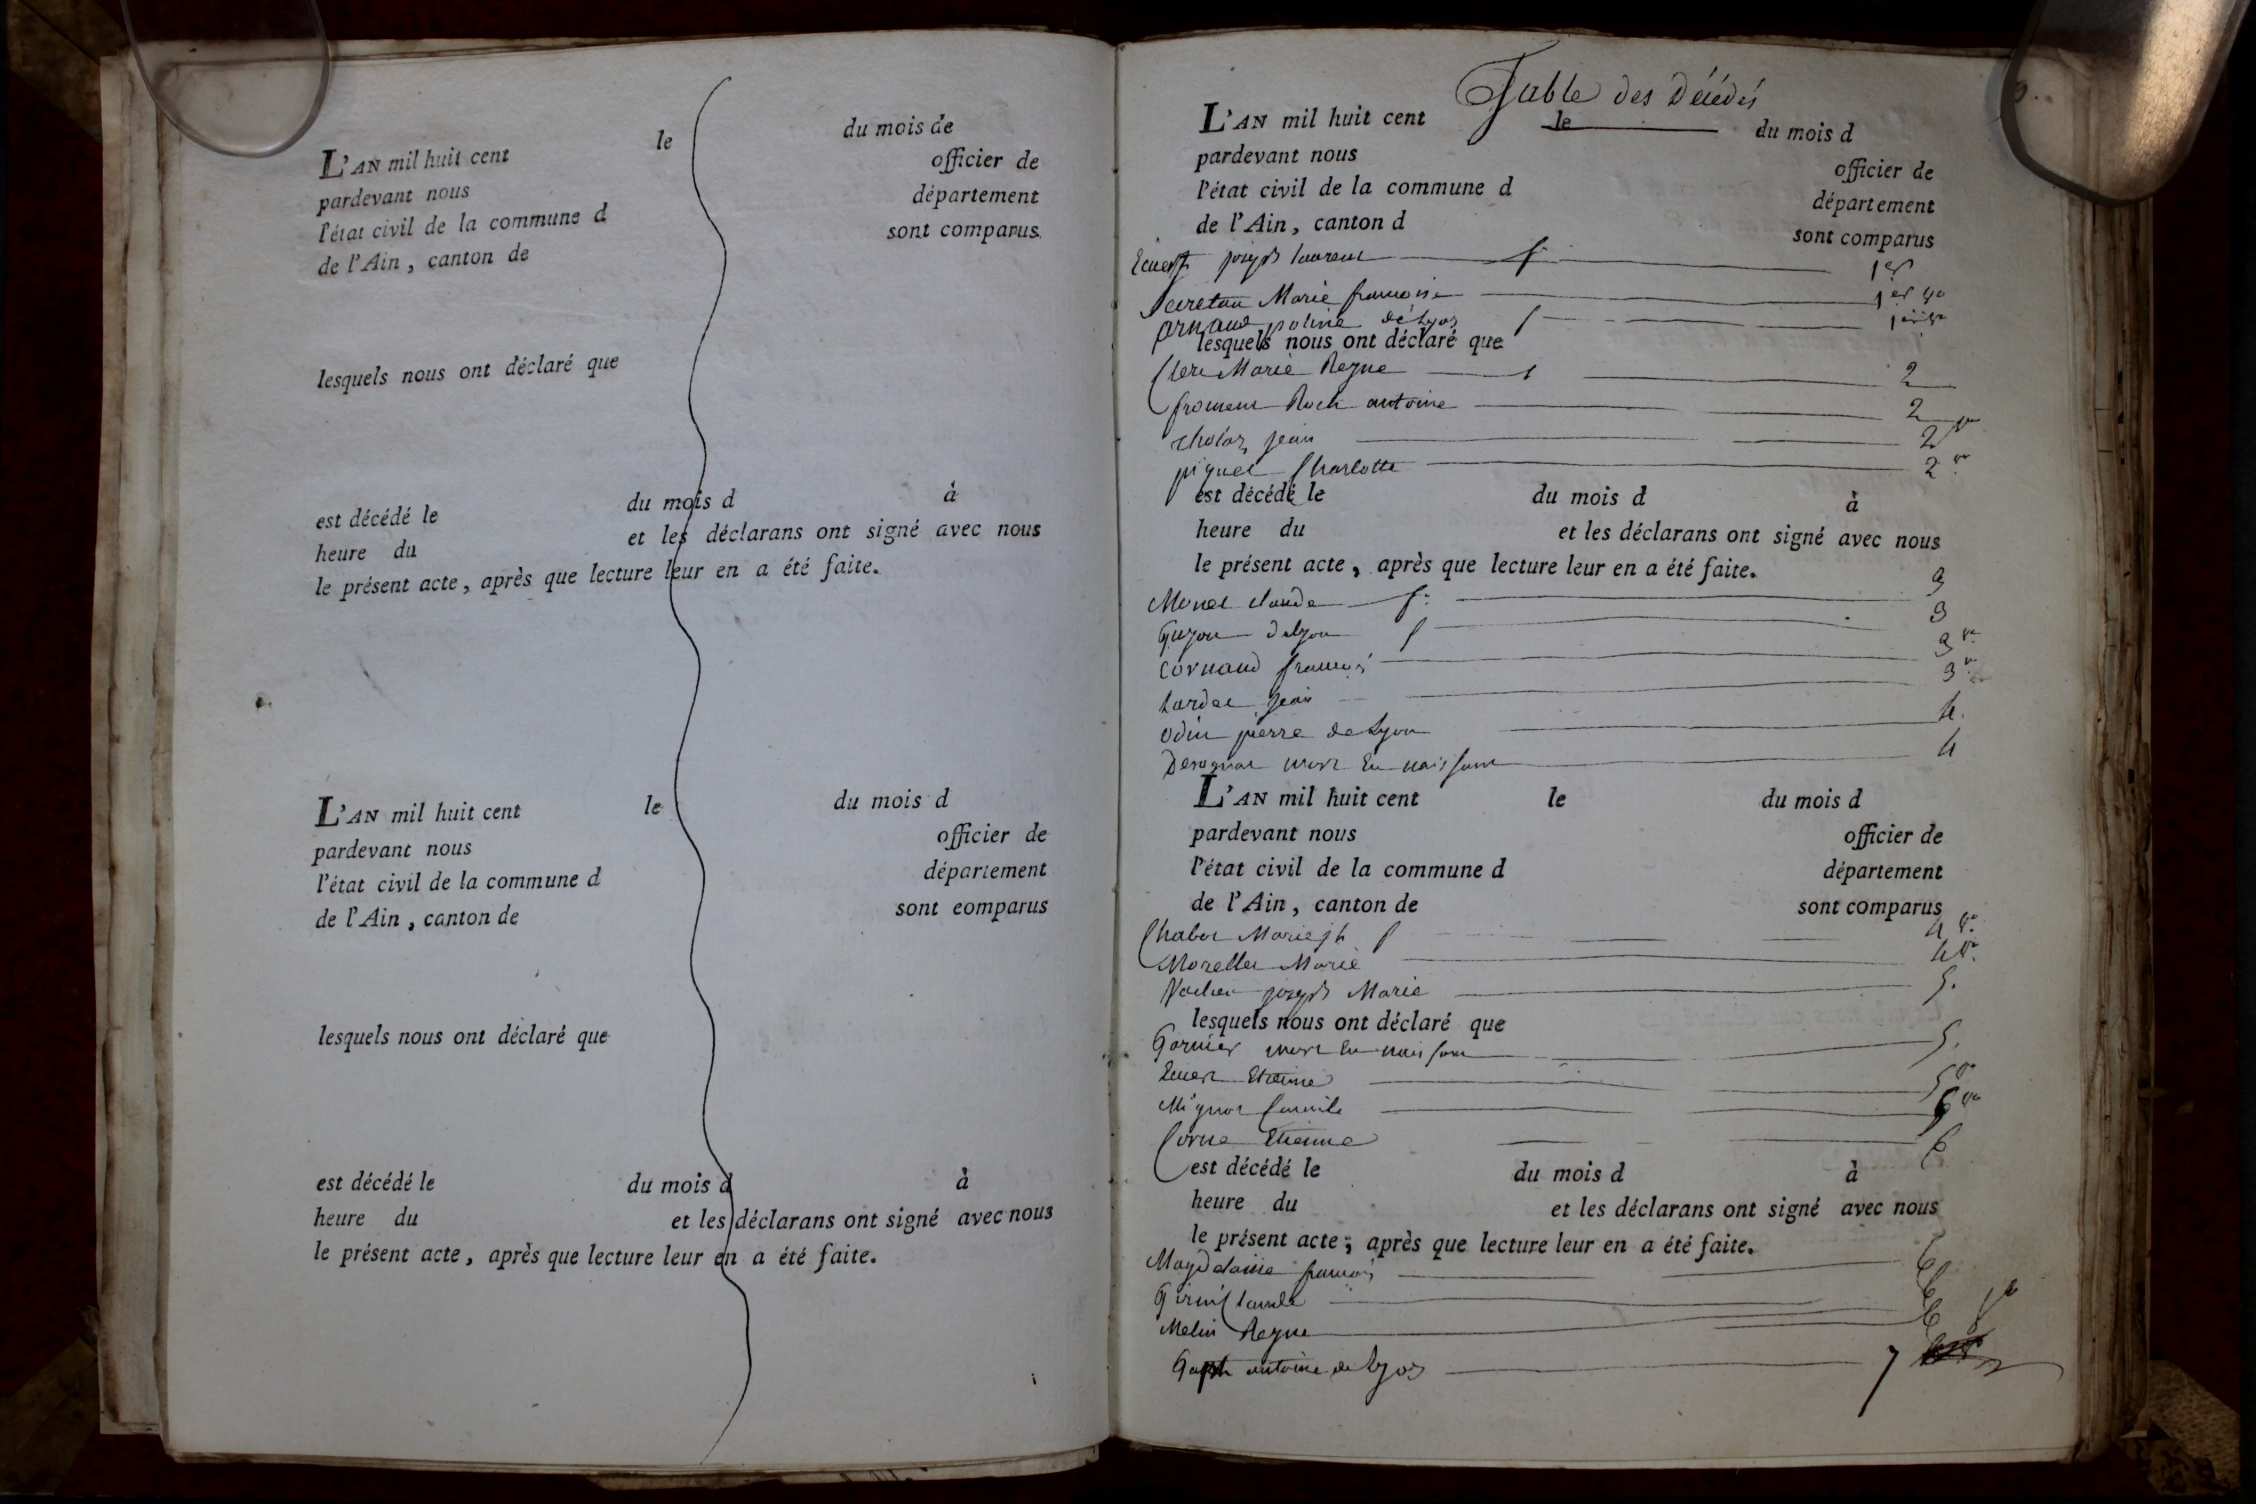 L'AN mil huit cent le du mois de
pardevant nous officier de
l'état civil de la commune d département
de l'Ain, canton de sont comparus
lesquels nous ont déclaré que
est décédé le du mois d à
heure du et les déclarans ont signé avec nous
le présent acte, après que lecture leur en a été faite.
L'AN mil huit cent le du mois d
pardevant nous officier de
l'état civil de la commune d département
de l'Ain, canton de sont comparus
lesquels nous ont déclaré que
est décédé le du mois d à
heure du et les déclarans ont signé avec nous
le présent acte, après que lecture leur en a été faite.
Table des Décédés
L'AN mil huit cent le du mois d
pardevant nous officier de
l'état civil de la commune d département
de l'Ain, canton d sont comparus
joseph laurent 1er
Marie francoise 1er vo
poline de Lyon
lesquels nous ont déclaré que
Clerc Marie Reyne 2
froment Roch antoine 2
jean 2 vo
piquet Charlotte 2 vo
est décédé le du mois d à
heure du et les déclarans ont signé avec nous
le présent acte, après que lecture leur en a été faite.
Monet claude 3
Guyon de lyon 3
Cornand francois 3 vo
Lardet jean 3 vo
Odin pierre de Lyon 4
mort En naissant 4
L'AN mil huit cent le du mois d
pardevant nous officier de
l'état civil de la commune d département
de l'Ain, canton de sont comparus
Chabot Marie jh 4 vo
Morellet Marie 4 vo
joseph Marie 5.
lesquels nous ont déclaré que
Garnier mort En naissant 5.
Etienne 5 vo
Mignot
Corne Etienne 6
est décédé le du mois d à
heure du et les déclarans ont signé avec nous
le présent acte, après que lecture leur en a été faite.
Magdelaine francois 6
Girin Claude 6
Melin Reyne 6 vo
antoine de Lyon 7